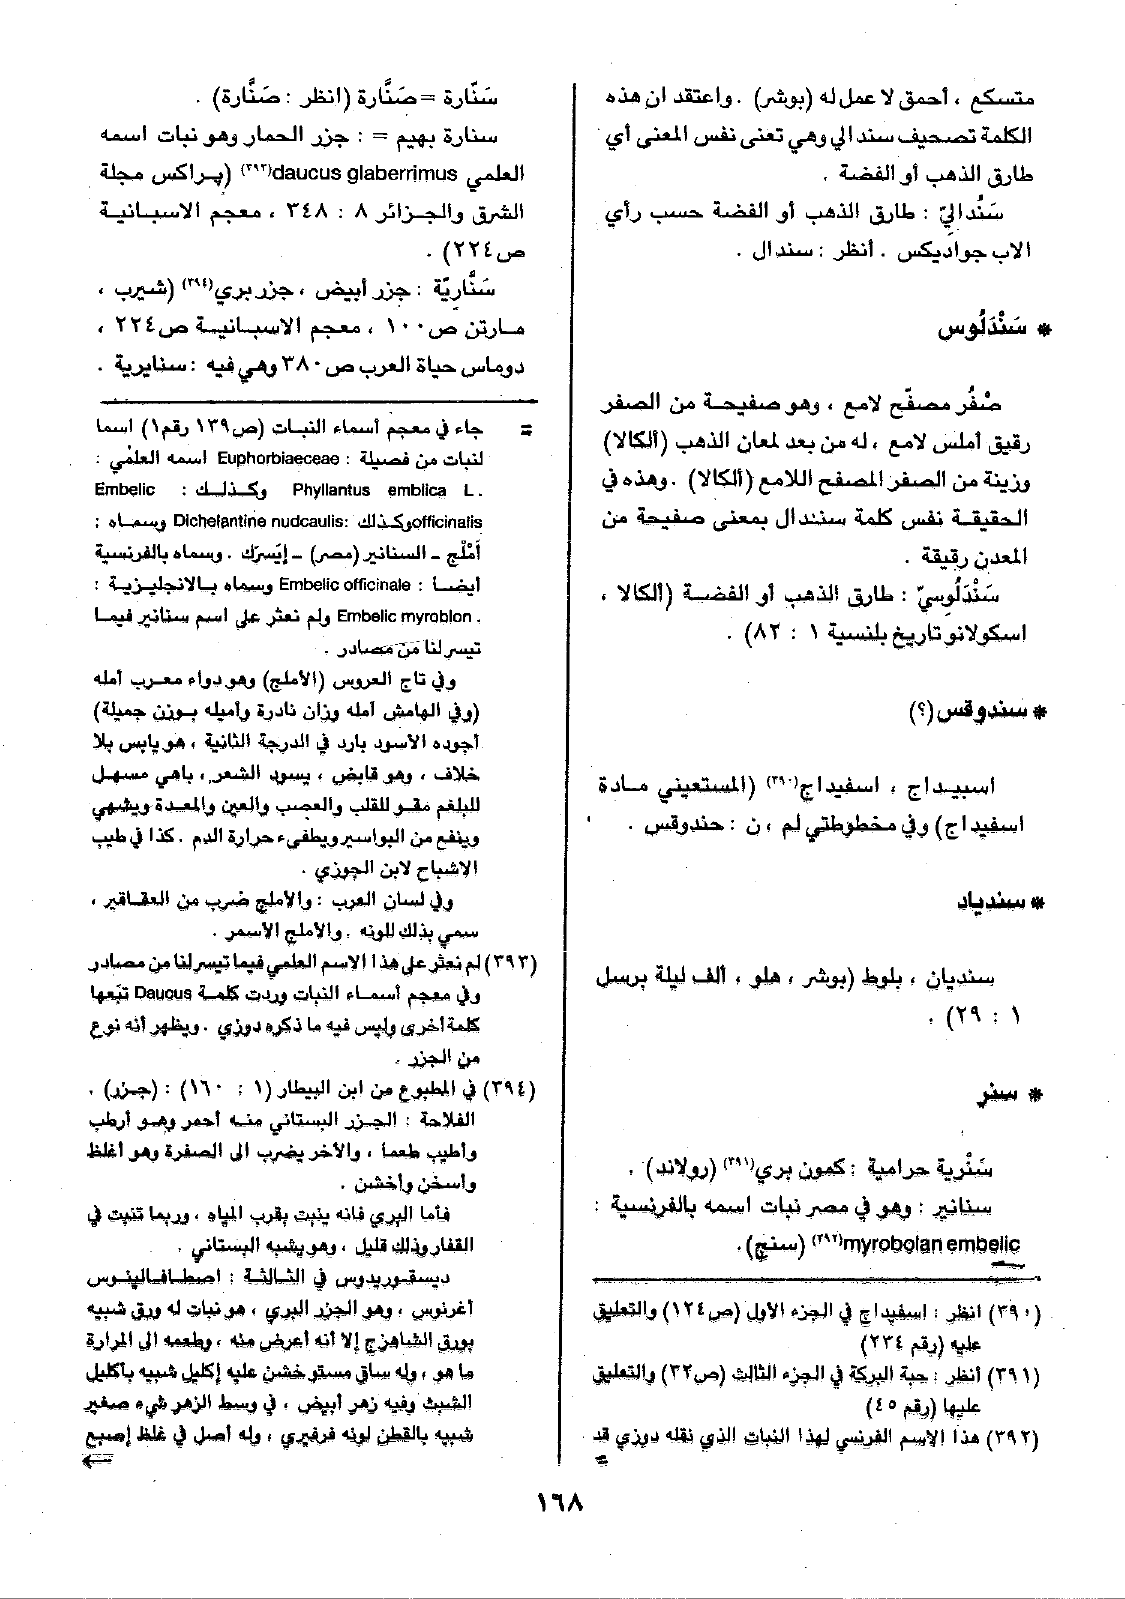 متسكع ، أحمق لا عمل له (بوشر) . واعتقد ان هذه
الكلمة تصحيف سندالي وهي تعنى نفس المعنى أي
طارق الذهب أو الفضة .
سَنْداليّ : طارق الذهب أو الفضة حسب رأي
الاب جواديكس . أنظر : سندال .
* سَنْدَلُوس
صُفْر مصفّح لامع ، وهو صفيحة من الصفر
رقيق أملس لامع ، له من بعد لمعان الذهب (ألكالا)
وزينة من الصفر المصفح اللامع (ألكالا) . وهذه في
الحقيقة نفس كلمة سندال بمعنى صفيحة من
المعدن رقيقة .
سَنْدَلُوسيّ : طارق الذهب أو الفضة (ألكالا ،
اسكولانو تاريخ بلنسية ١ : ٨٢) .
* سندوقس (؟)
اسبيداج ، اسفيداج(٣٩٠) (المستعيني مادة
اسفيداج) وفي مخطوطتي لم ، ن : حندوقس .
* سندياد
سنديان ، بلوط (بوشر ، هلو ، ألف ليلة برسل
١ : ٢٩) .
* سنر
سَنْرية حرامية : كمون بري(٣٩١) (رولاند) .
سنانير : وهو في مصر نبات اسمه بالفرنسية :
myrobolan embelic(٣٩٢) (سنج).
(٣٩٠) انظر : اسفيداج في الجزء الأول (ص١٢٤) والتعليق
عليه (رقم ٢٣٤)
(٣٩١) أنظر : حبة البركة في الجزء الثالث (ص٣٢) والتعليق
عليها (رقم ٤٥)
(٣٩٢) هذا الاسم الفرنسي لهذا النبات الذي نقله دوزي قد
=
سَنّارة = صَنَّارة (انظر : صَنَّارة) .
سنارة بهيم = : جزر الحمار وهو نبات اسمه
العلمي daucus glaberrimus(٣٩٣) (پراكس مجلة
الشرق والجزائر ٨ : ٣٤٨ ، معجم الاسبانية
ص٢٢٤) .
سَنَّاريّة : جزر أبيض ، جزر بري(٣٩٤) (شيرب ،
مارتن ص١٠٠ ، معجم الاسبانية ص٢٢٤ ،
دوماس حياة العرب ص٣٨٠ وهي فيه : سنايرية .
= جاء في معجم أسماء النبات (ص١٣٩ رقم١) اسما
لنبات من فصيلة : Euphorbiaeceae اسمه العلمي :
Phyllantus emblica L. وكذلك : Embelic
officinalis وكذلك :Dichelantine nudcaulis وسماه :
أَمْلَج ــ السنانير (مصر) ــ إيْسرَك . وسماه بالفرنسية
أيضا : Embelic officinale وسماه بالانجليزية :
Embelic myroblon . ولم نعثر على اسم سنانير فيما
تيسر لنا من مصادر .
وفي تاج العروس (الأملج) وهو دواء معرب أمله
(وفي الهامش أمله وزان نادرة وأميله بوزن جميلة)
أجوده الأسود بارد في الدرجة الثانية ، هو يابس بلا
خلاف ، وهو قابض ، يسود الشعر ، باهي مسهل
للبلغم مقو للقلب والعصب والعين والمعدة ويشهي
وينفع من البواسير ويطفيء حرارة الدم . كذا في طيب
الاشباح لابن الجوزي .
وفي لسان العرب : والأملج ضرب من العقاقير ،
سمي بذلك للونه . والأملج الأسمر .
(٣٩٣) لم نعثر على هذا الاسم العلمي فيما تيسر لنا من مصادر
وفي معجم أسماء النبات وردت كلمة Daucus تتبعها
كلمة أخرى وليس فيه ما ذكره دوزي . ويظهر أنه نوع
من الجزر .
(٣٩٤) في المطبوع من ابن البيطار (١ : ١٦٠) : (جزر) .
الفلاحة : الجزر البستاني منه أحمر وهو أرطب
وأطيب طعما ، والآخر يضرب الى الصفرة وهو أغلظ
وأسخن وأخشن .
فأما البري فانه ينبت بقرب المياه ، وربما تنبت في
القفار وذلك قليل ، وهو يشبه البستاني .
ديسقوريدوس في الثالثة : اصطافالينوس
أغرنوس ، وهو الجزر البري ، هو نبات له ورق شبيه
بورق الشاهترج إلا أنه أعرض منه ، وطعمه الى المرارة
ما هو ، وله ساق مستو خشن عليه إكليل شبيه بأكليل
الشبث وفيه زهر أبيض ، في وسط الزهر شيء صغير
شبيه بالقطن لونه فرفيري ، وله أصل في غلظ إصبع
١٦٨